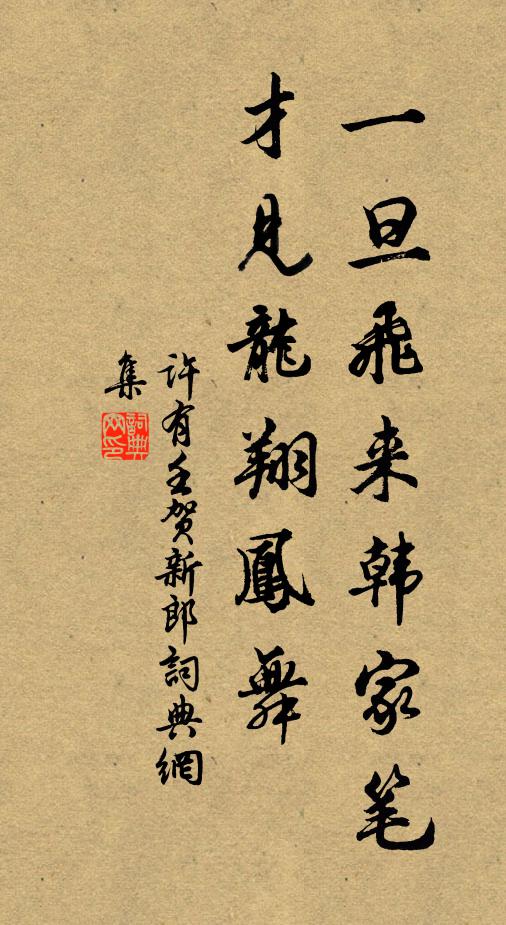 一旦飛来韩家笔
才見龍翔鳳舞
許有壬贺新郎詞典網
集
詞典
网印